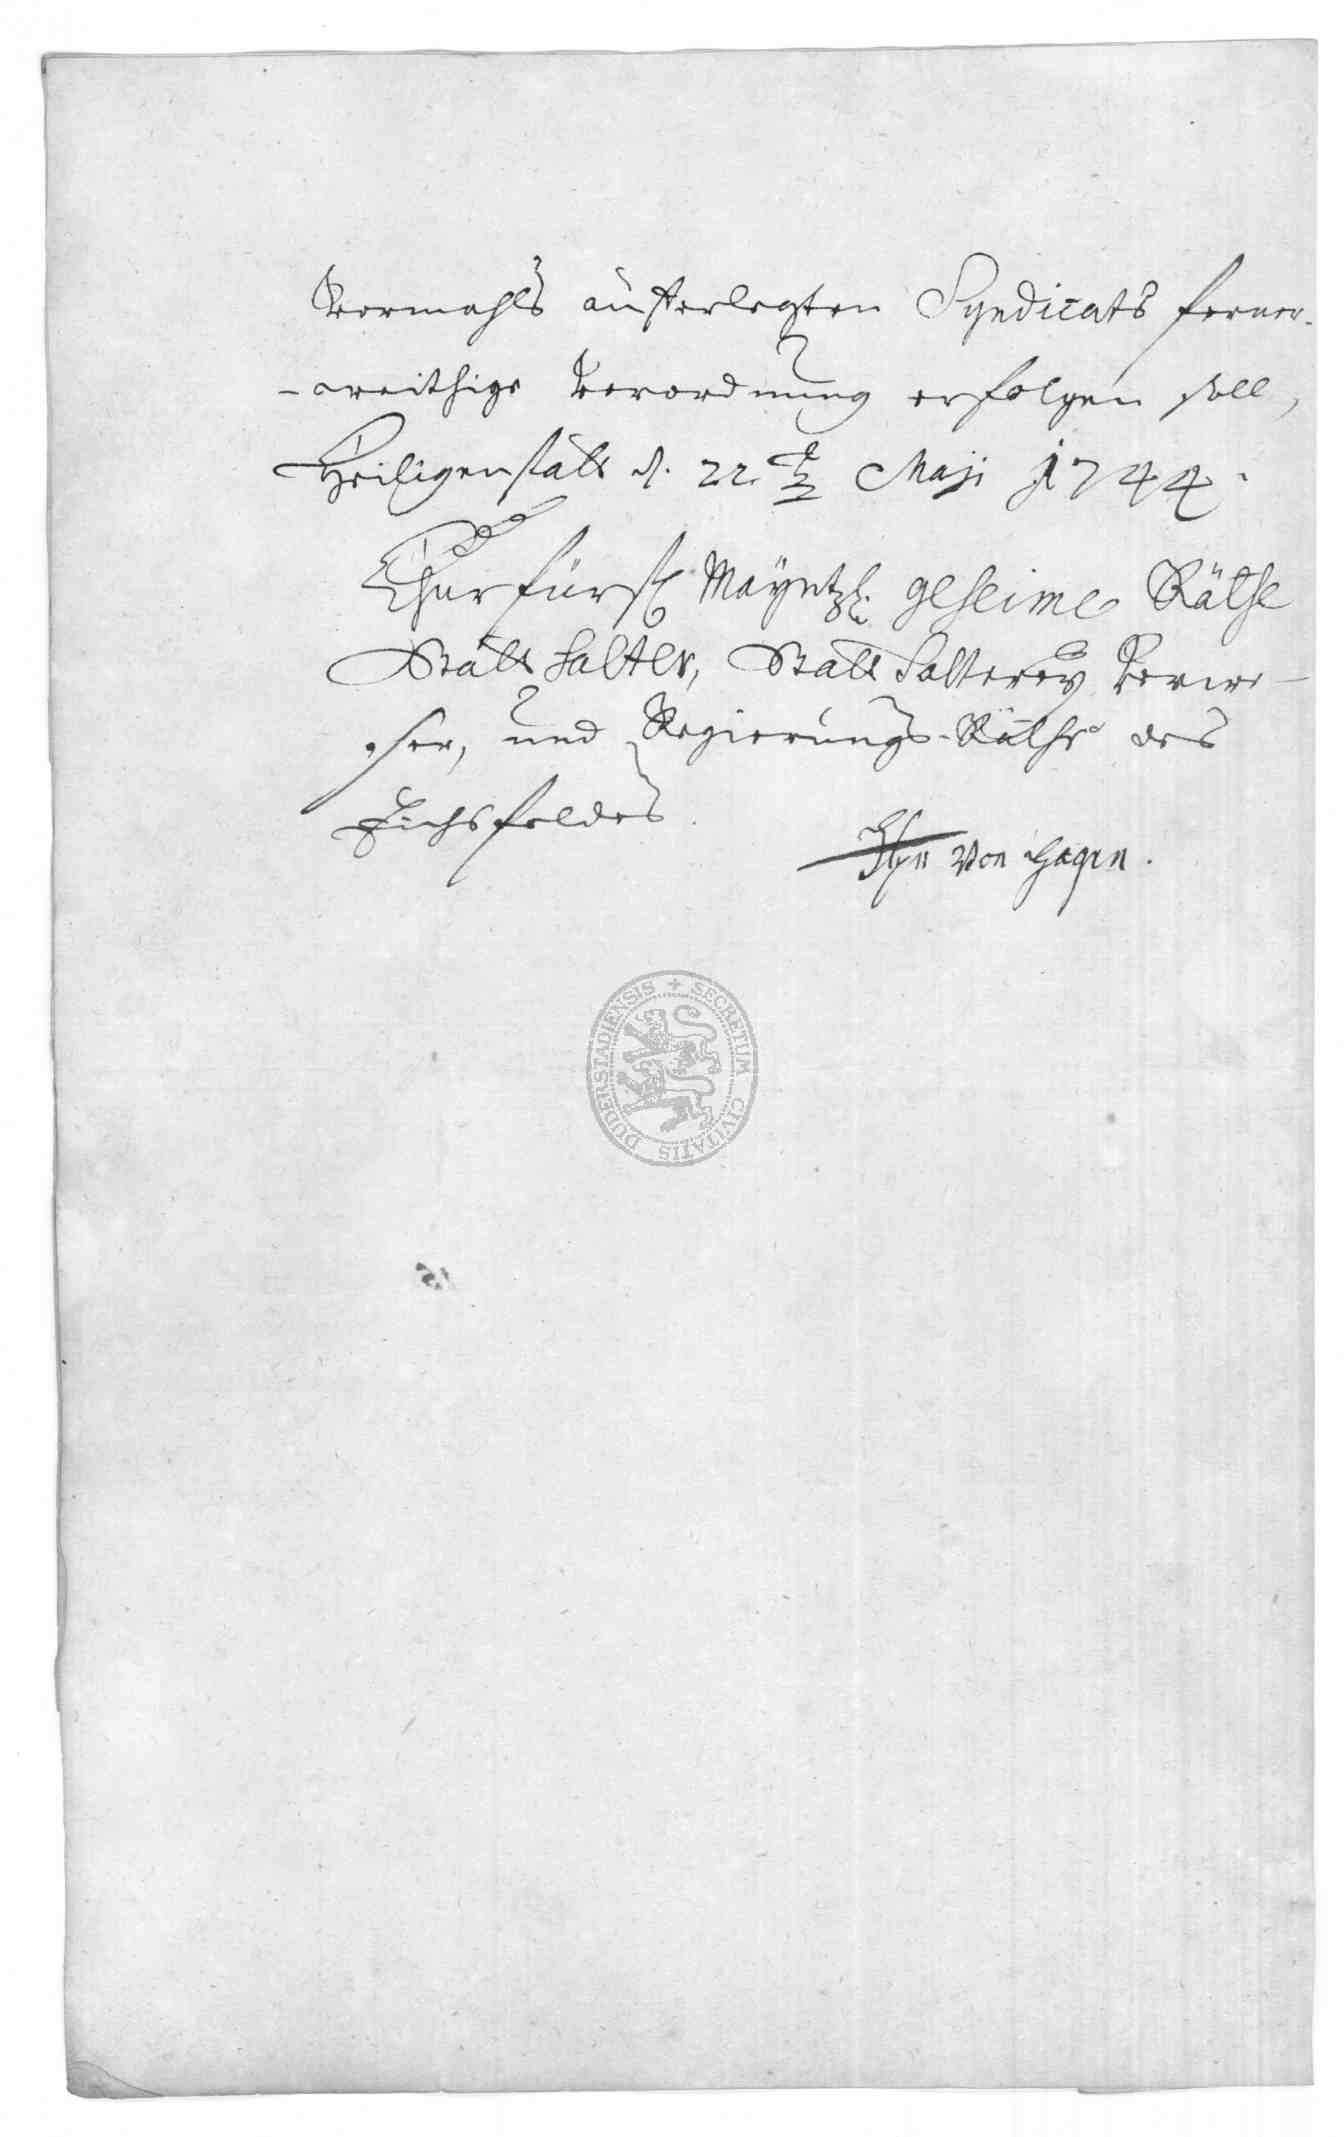 vormahls aufferlegten Syndicats ferner-
-weithige Verordnung erfolgen soll,
Heiligenstatt d. 22.t Maji 1744.
Churfürstl. Mayntzl. geheime Räthe
Statthalter, Statthalterey Verwe-
ser, und Regierungs-Räthe des
Eichsfeldes.
von Hagen.
SECRETUM CIVITATIS DUDERSTADIENSIS